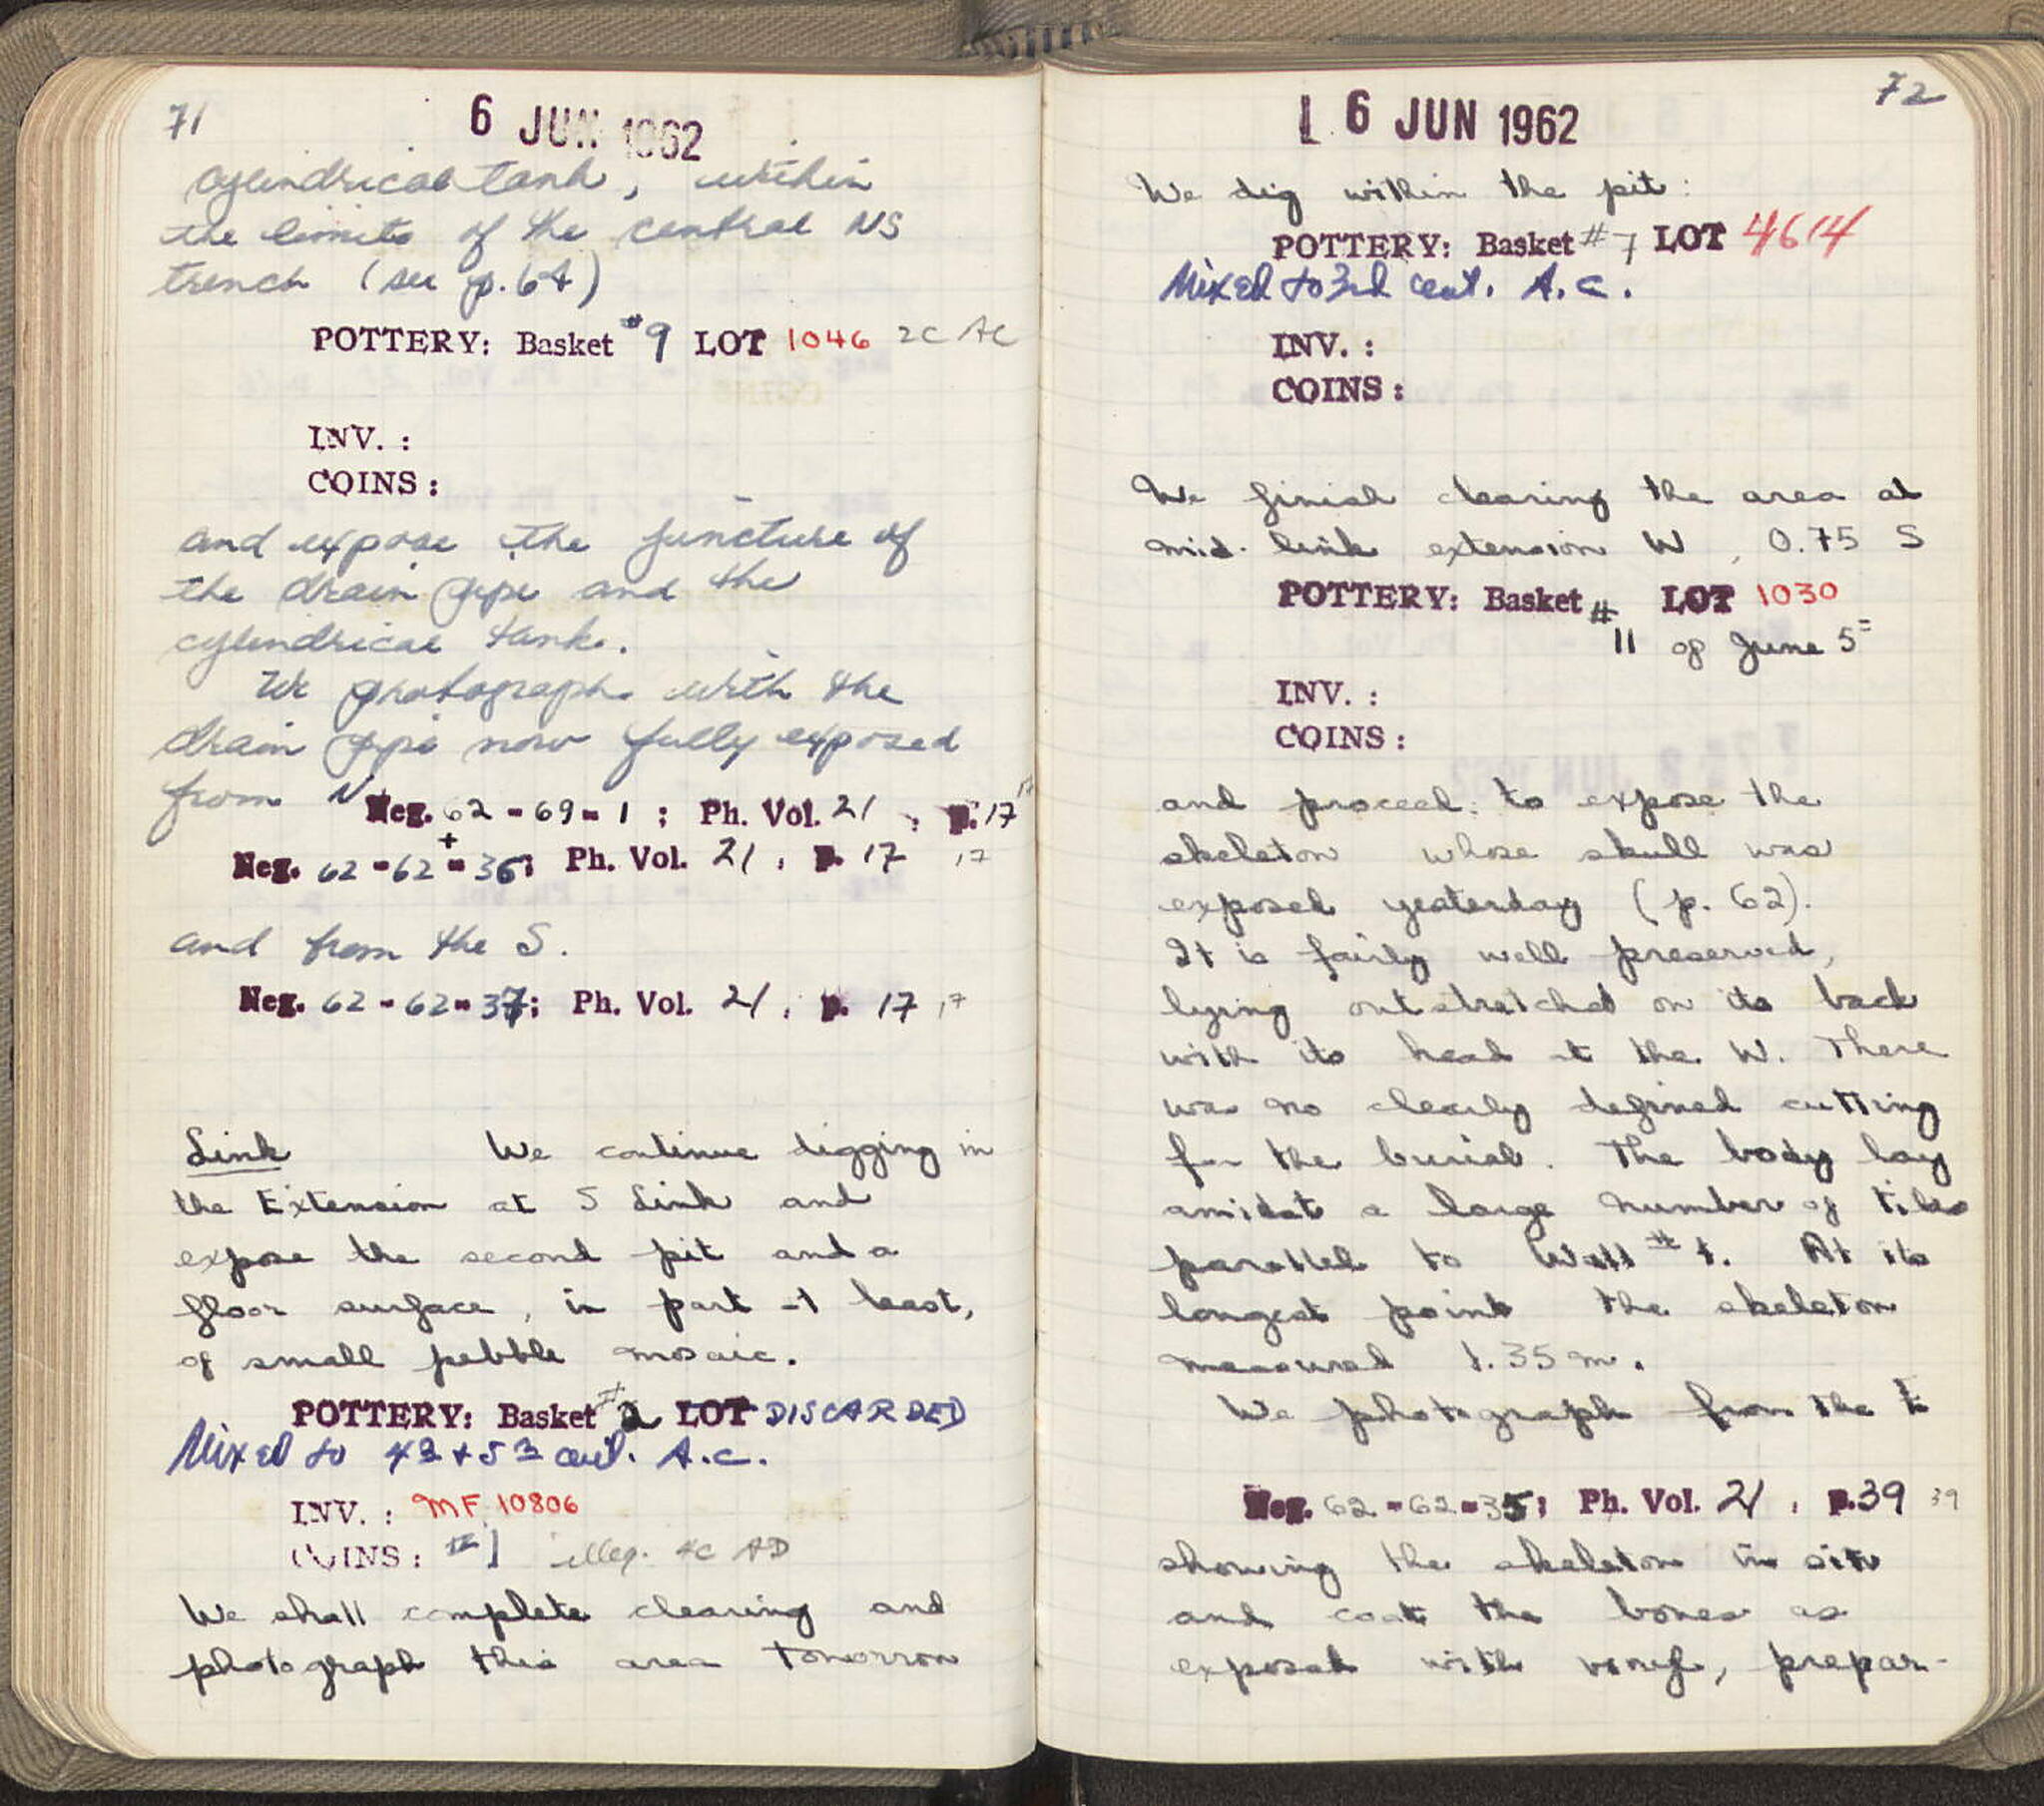 71
6 JUN 1962
cylindrical tank, within
the limits of the central NS
trench (see p. 64)
POTTERY: Basket #9 LOT 1046 2C AC
INV. :
COINS :
and expose the juncture of
the drain pipe and the
cylindrical tank.
We photograph with the
drain pipe now fully exposed
from N
Neg. 62-69-1 ; Ph. Vol. 21 , p. 17 17
+
Neg. 62-62-36; Ph. Vol. 21 , p. 17 17
and from the S.
Neg. 62-62-37; Ph. Vol. 21 , p. 17 17
Link We continue digging in
the Extension at S Link and
expose the second pit and a
floor surface, in part at least,
of small pebble mosaic.
POTTERY: Basket #2 LOT DISCARDED
Mixed to 4th + 5th cent. A.C.
INV. : MF 10806
COINS : #1 illeg. 4C AD
We shall complete clearing and
photograph this area tomorrow
72
6 JUN 1962
We dig within the pit:
POTTERY: Basket #7 LOT 4614
Mixed to 3rd cent. A.C.
INV. :
COINS :
We finish clearing the area at
mid. link extension W , 0.75 S
POTTERY: Basket # LOT 1030
11 of June 5
INV. :
COINS :
and proceed to expose the
skeleton whose skull was
exposed yesterday (p. 62).
It is fairly well preserved,
lying outstretched on its back
with its head at the W. There
was no clearly defined cutting
for the burial. The body lay
amidst a large number of tiles
parallel to Wall #1. At its
longest point the skeleton
measured 1.35 m.
We photograph from the E
Neg. 62-62-35; Ph. Vol. 21 , p. 39 39
showing the skeleton in situ
and coat the bones as
exposed with , prepar-